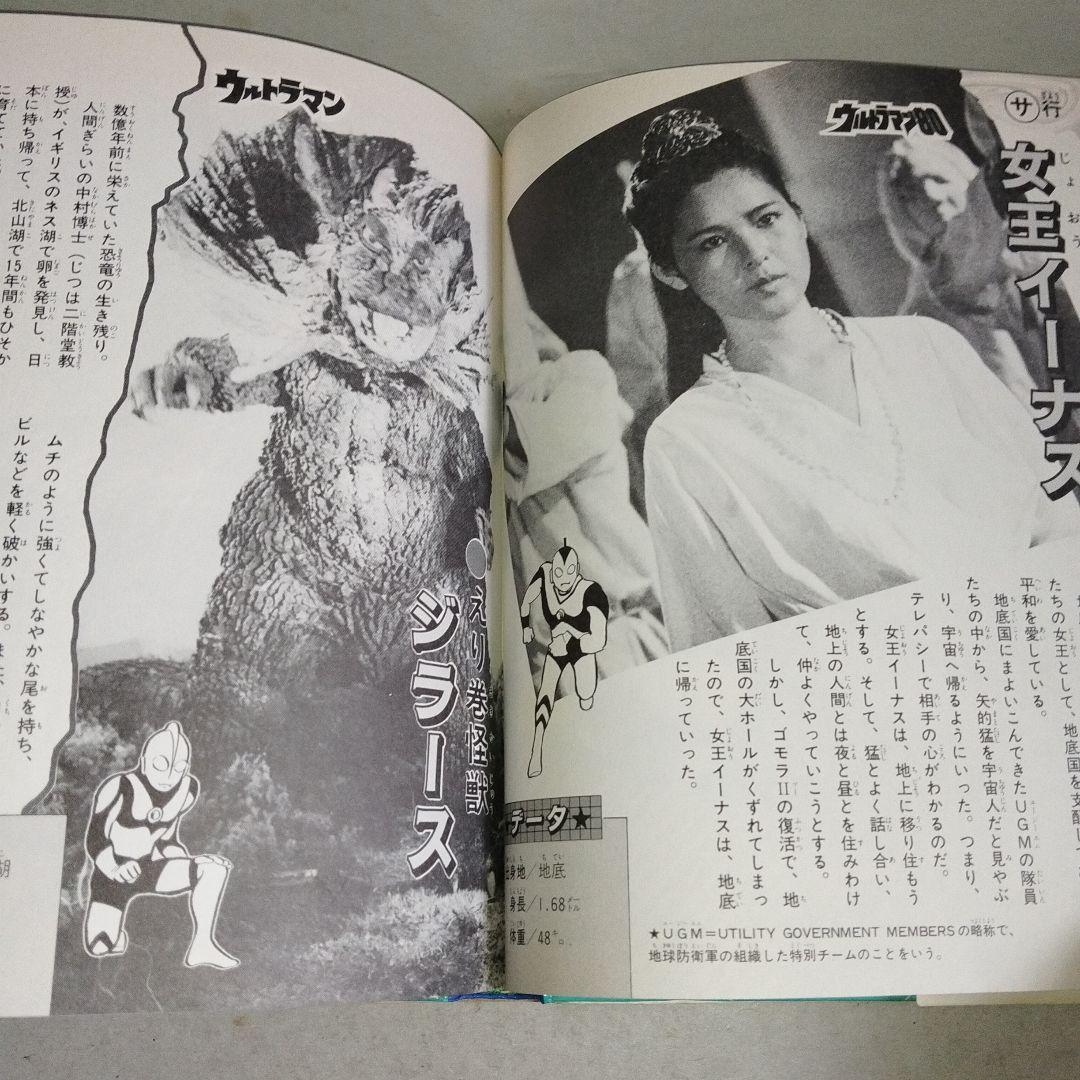 サ行
女王イーナス
ウルトラマン80
たちの女王として、地底国を支配し
平和を愛している。
地底国にまよいこんできたUGMの隊員
たちの中から、矢的猛を宇宙人だと見やぶ
り、宇宙へ帰るようにいった。つまり、
テレパシーで相手の心がわかるのだ。
女王イーナスは、地上に移り住もう
とする。そして、猛とよく話し合い、
地上の人間とは夜と昼とを住みわけ
て、仲よくやっていこうとする。
しかし、ゴモラⅡの復活で、地
底国の大ホールがくずれてしまっ
たので、女王イーナスは、地底
に帰っていった。
データ★
出身地/地底
身長/1.68メートル
体重/48キロ
★UGM=UTILITY GOVERNMENT MEMBERSの略称で、
地球防衛軍の組織した特別チームのことをいう。
ウルトラマン
●えり巻怪獣
ジラース
数億年前に栄えていた恐竜の生き残り。
人間ぎらいの中村博士(じつは二階堂教
授)が、イギリスのネス湖で卵を発見し、日
本に持ち帰って、北山湖で15年間もひそか
に育てて
ムチのように強くてしなやかな尾を持ち、
ビルなどを軽く破かいする。また、
湖